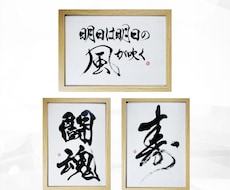 明日は明日の
風が吹く
闘魂
寿